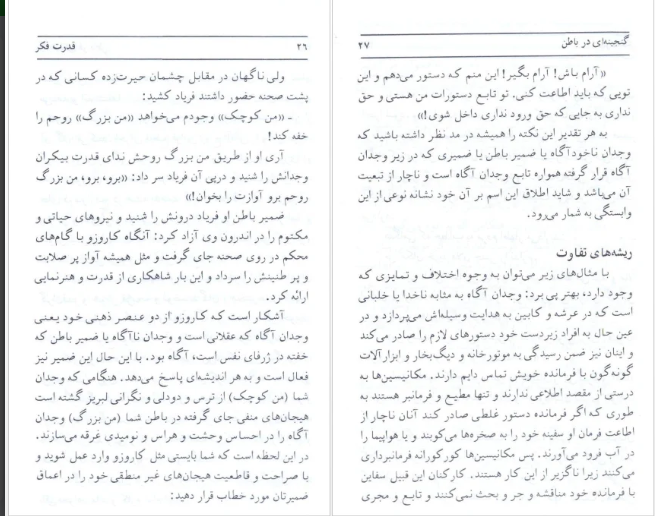 ۲۶ قدرت فکر
ولی ناگهان در مقابل چشمان حیرت‌زده کسانی که در
پشت صحنه حضور داشتند فریاد کشید:
ـ «من کوچک» وجودم می‌خواهد «من بزرگ» روحم را
خفه کند!
آری او از طریق من بزرگ روحش ندای قدرت بیکران
وجدانش را شنید و درپی آن فریاد سر داد: «برو، برو، من بزرگ
روحم برو آوازت را بخوان!»
ضمیر باطن او فریاد درونش را شنید و نیروهای حیاتی و
مکتوم را در اندرون وی آزاد کرد: آنگاه کاروزو با گام‌های
محکم در روی صحنه جای گرفت و مثل همیشه آواز پر صلابت
و پر طنینش را سرداد و این بار شاهکاری از قدرت و هنرنمایی
ارائه کرد.
آشکار است که کاروزو از دو عنصر ذهنی خود یعنی
وجدان آگاه که عقلانی است و وجدان ناآگاه یا ضمیر باطن که
خفته در ژرفای نفس است، آگاه بود. با این حال این ضمیر نیز
فعال است و به هر اندیشه‌ای پاسخ می‌دهد. هنگامی که وجدان
شما (من کوچک) از ترس و دودلی و نگرانی لبریز گشته است
هیجان‌های منفی جای گرفته در باطن شما (من بزرگ) وجدان
آگاه را در احساس وحشت و هراس و نومیدی غرقه می‌سازند.
در این لحظه است که شما بایستی مثل کاروزو وارد عمل شوید و
با صراحت و قاطعیت هیجان‌های غیر منطقی خود را در اعماق
ضمیرتان مورد خطاب قرار دهید:
گنجینه‌ای در باطن ۲۷
«آرام باش! آرام بگیر! این منم که دستور می‌دهم و این
تویی که باید اطاعت کنی. تو تابع دستورات من هستی و حق
نداری به جایی که حق ورود نداری داخل شوی!»
به هر تقدیر این نکته را همیشه در مد نظر داشته باشید که
وجدان ناخودآگاه یا ضمیر باطن یا ضمیری که در زیر وجدان
آگاه قرار گرفته همواره تابع وجدان آگاه است و ناچار از تبعیت
آن می‌باشد و شاید اطلاق این اسم بر آن خود نشانه نوعی از این
وابستگی به شمار می‌رود.
ریشه‌های تفاوت
با مثال‌های زیر می‌توان به وجوه اختلاف و تمایزی که
وجود دارد، بهتر پی برد: وجدان آگاه به مثابه ناخدا یا خلبانی
است که در عرشه و کابین به هدایت وسیله‌اش می‌پردازد و در
عین حال به افراد زیردست خود دستورهای لازم را صادر می‌کند
و اینان نیز ضمن رسیدگی به موتورخانه و دیگ‌بخار و ابزارآلات
گونه‌گون با فرمانده خویش تماس دایم دارند. مکانیسین‌ها به
درستی از مقصد اطلاعی ندارند و تنها مطیع و فرمانبر هستند به
طوری که اگر فرمانده دستور غلطی صادر کند آنان ناچار از
اطاعت فرمان او سفینه خود را به صخره‌ها می‌کوبند و یا هواپیما را
در آب فرود می‌آورند. پس مکانیسین‌ها کورکورانه فرمانبرداری
می‌کنند زیرا ناگزیر از این کار هستند. کارکنان این قبیل سفاین
با فرمانده خود مناقشه و جر و بحث نمی‌کنند و تابع و مجری